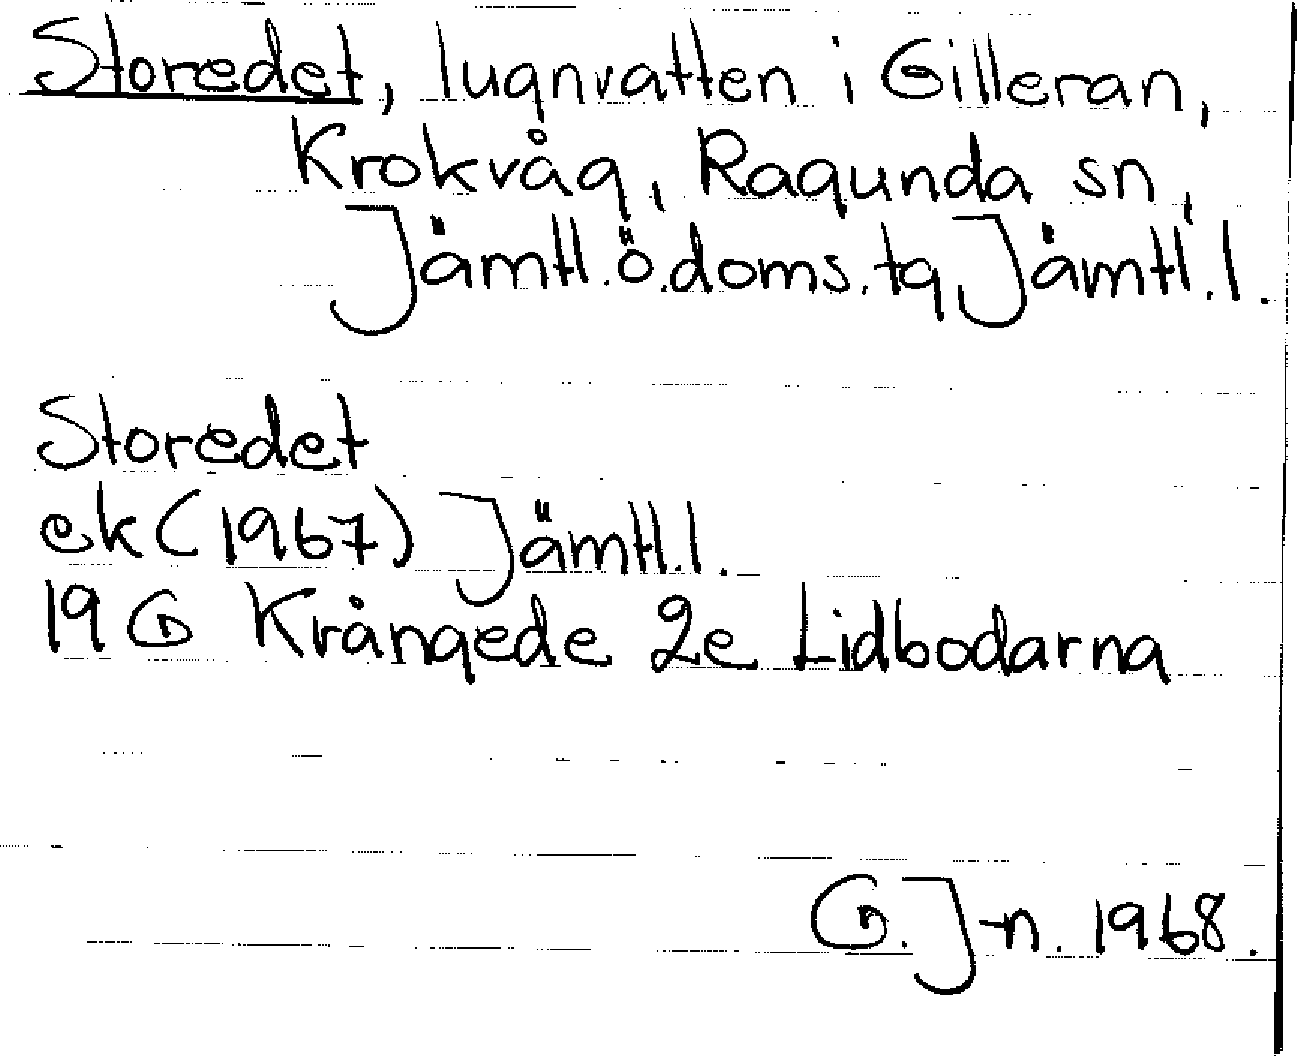 Storedet, lugnvatten i Gilleran,
Krokvåg, Ragunda sn,
Jämtl.ö.doms.tg Jämtl.l.
Storedet
ek (1967) Jämtl.l.
19 G Krångede 2e Lidbodarna
G. J-n. 1968.